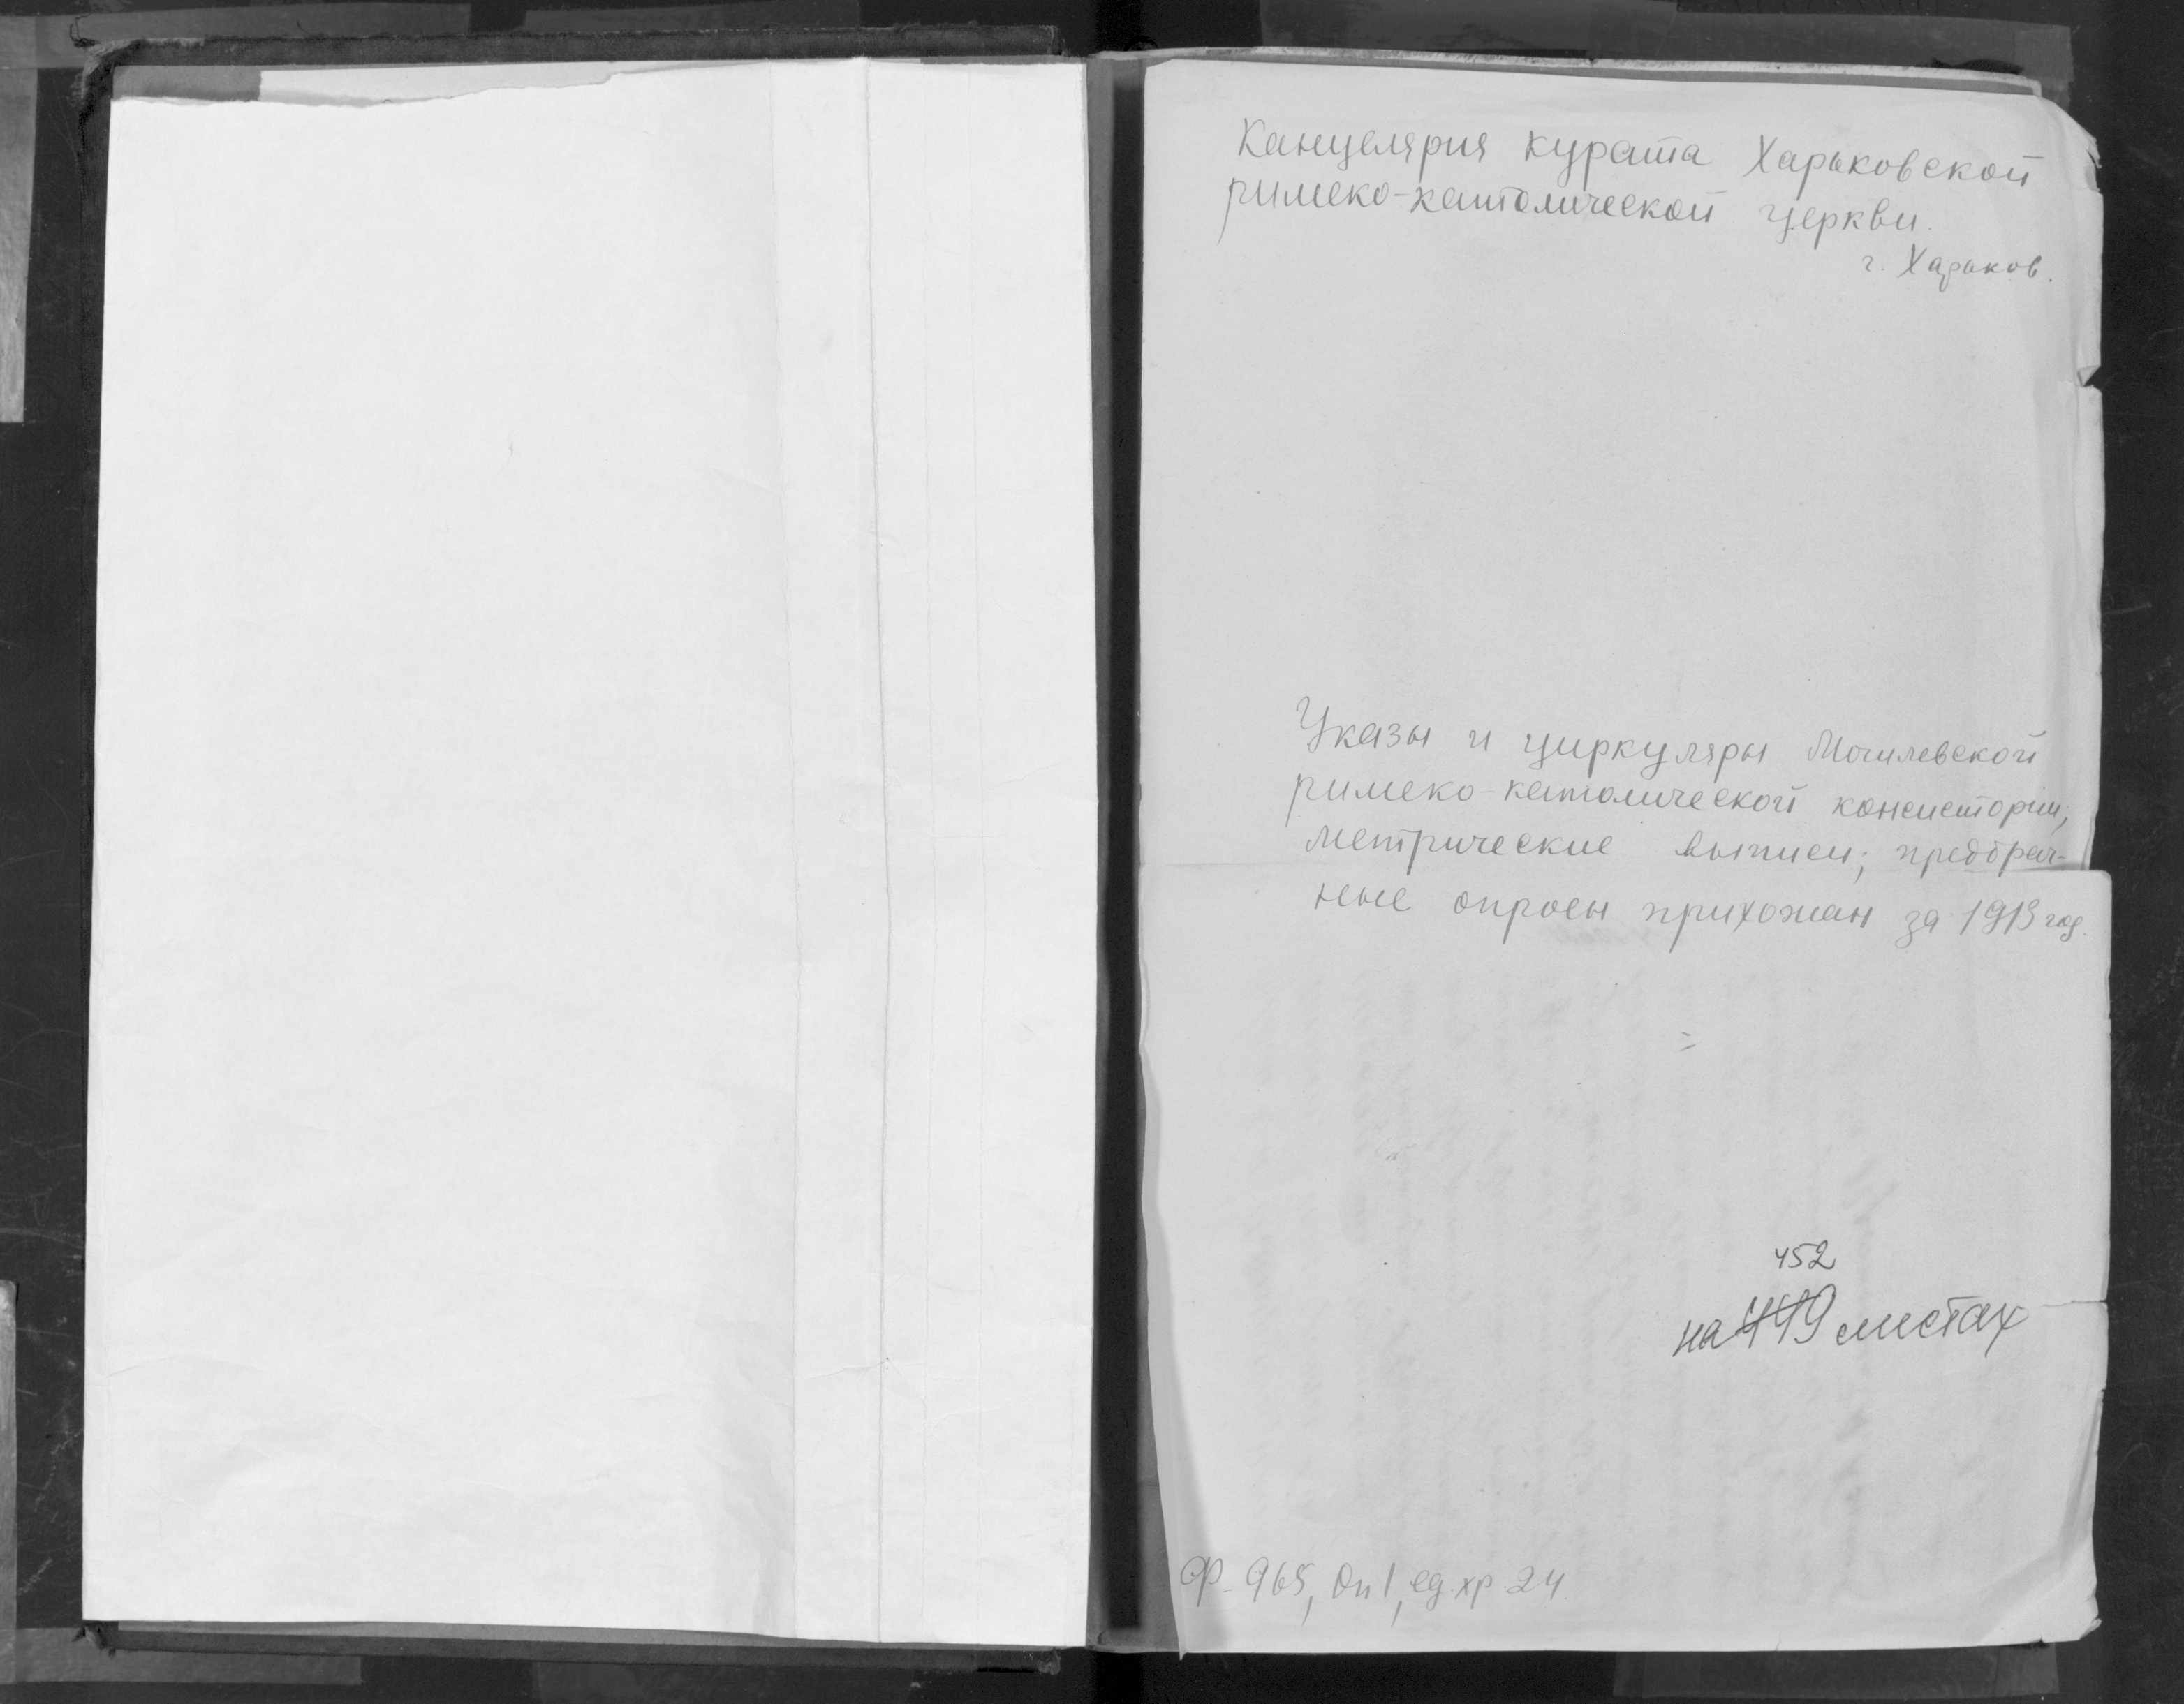 Канцелярия курата Харьковской
римско-католической церкви.
г. Харьков.
Указы и циркуляры Могилевской
римско-католической консистории;
метрические выписи; предбрач-
ные опросы прихожан за 1913 год.
452
на 449 листах
Ф. 965, оп 1, ед. хр. 24